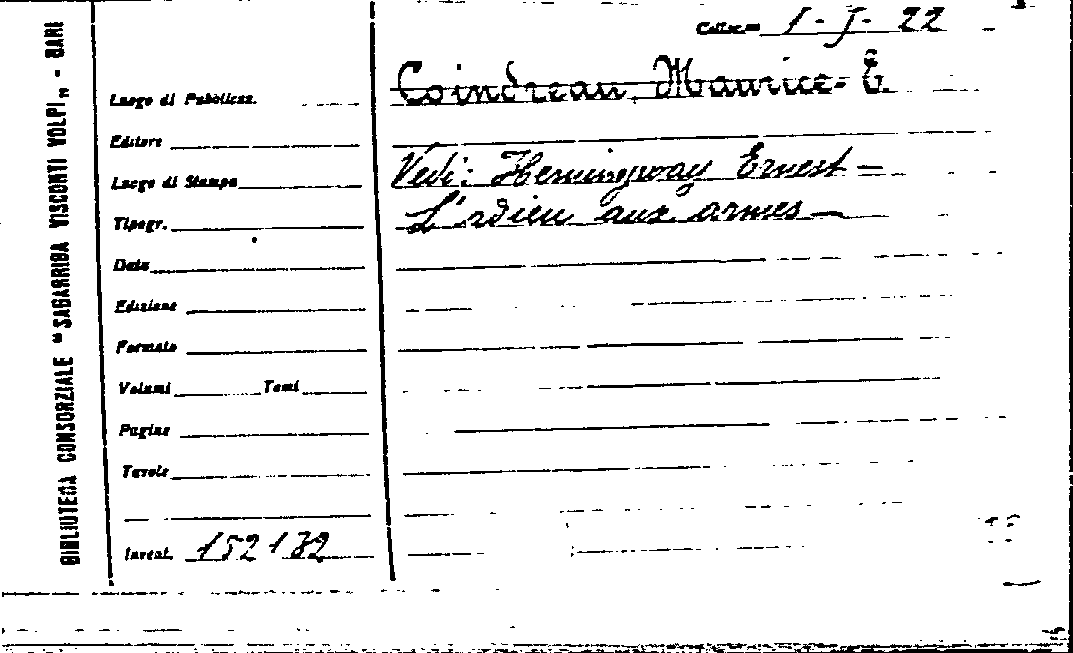 BIBLIOTECA CONSORZIALE "SAGARRIGA VISCONTI VOLPI" - BARI
Collocaz. 1-J-22
Luogo di Pubblicaz.
Coindreau, Maurice-E.
Editore
Luogo di Stampa
Vedi: Hemingway Ernest —
Tipogr.
L'adieu aux armes —
Data
Edizione
Formato
Volumi Tomi
Pagine
Tavole
Invent. 152132